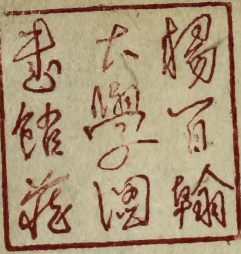 楊百翰
大學圖
書館藏